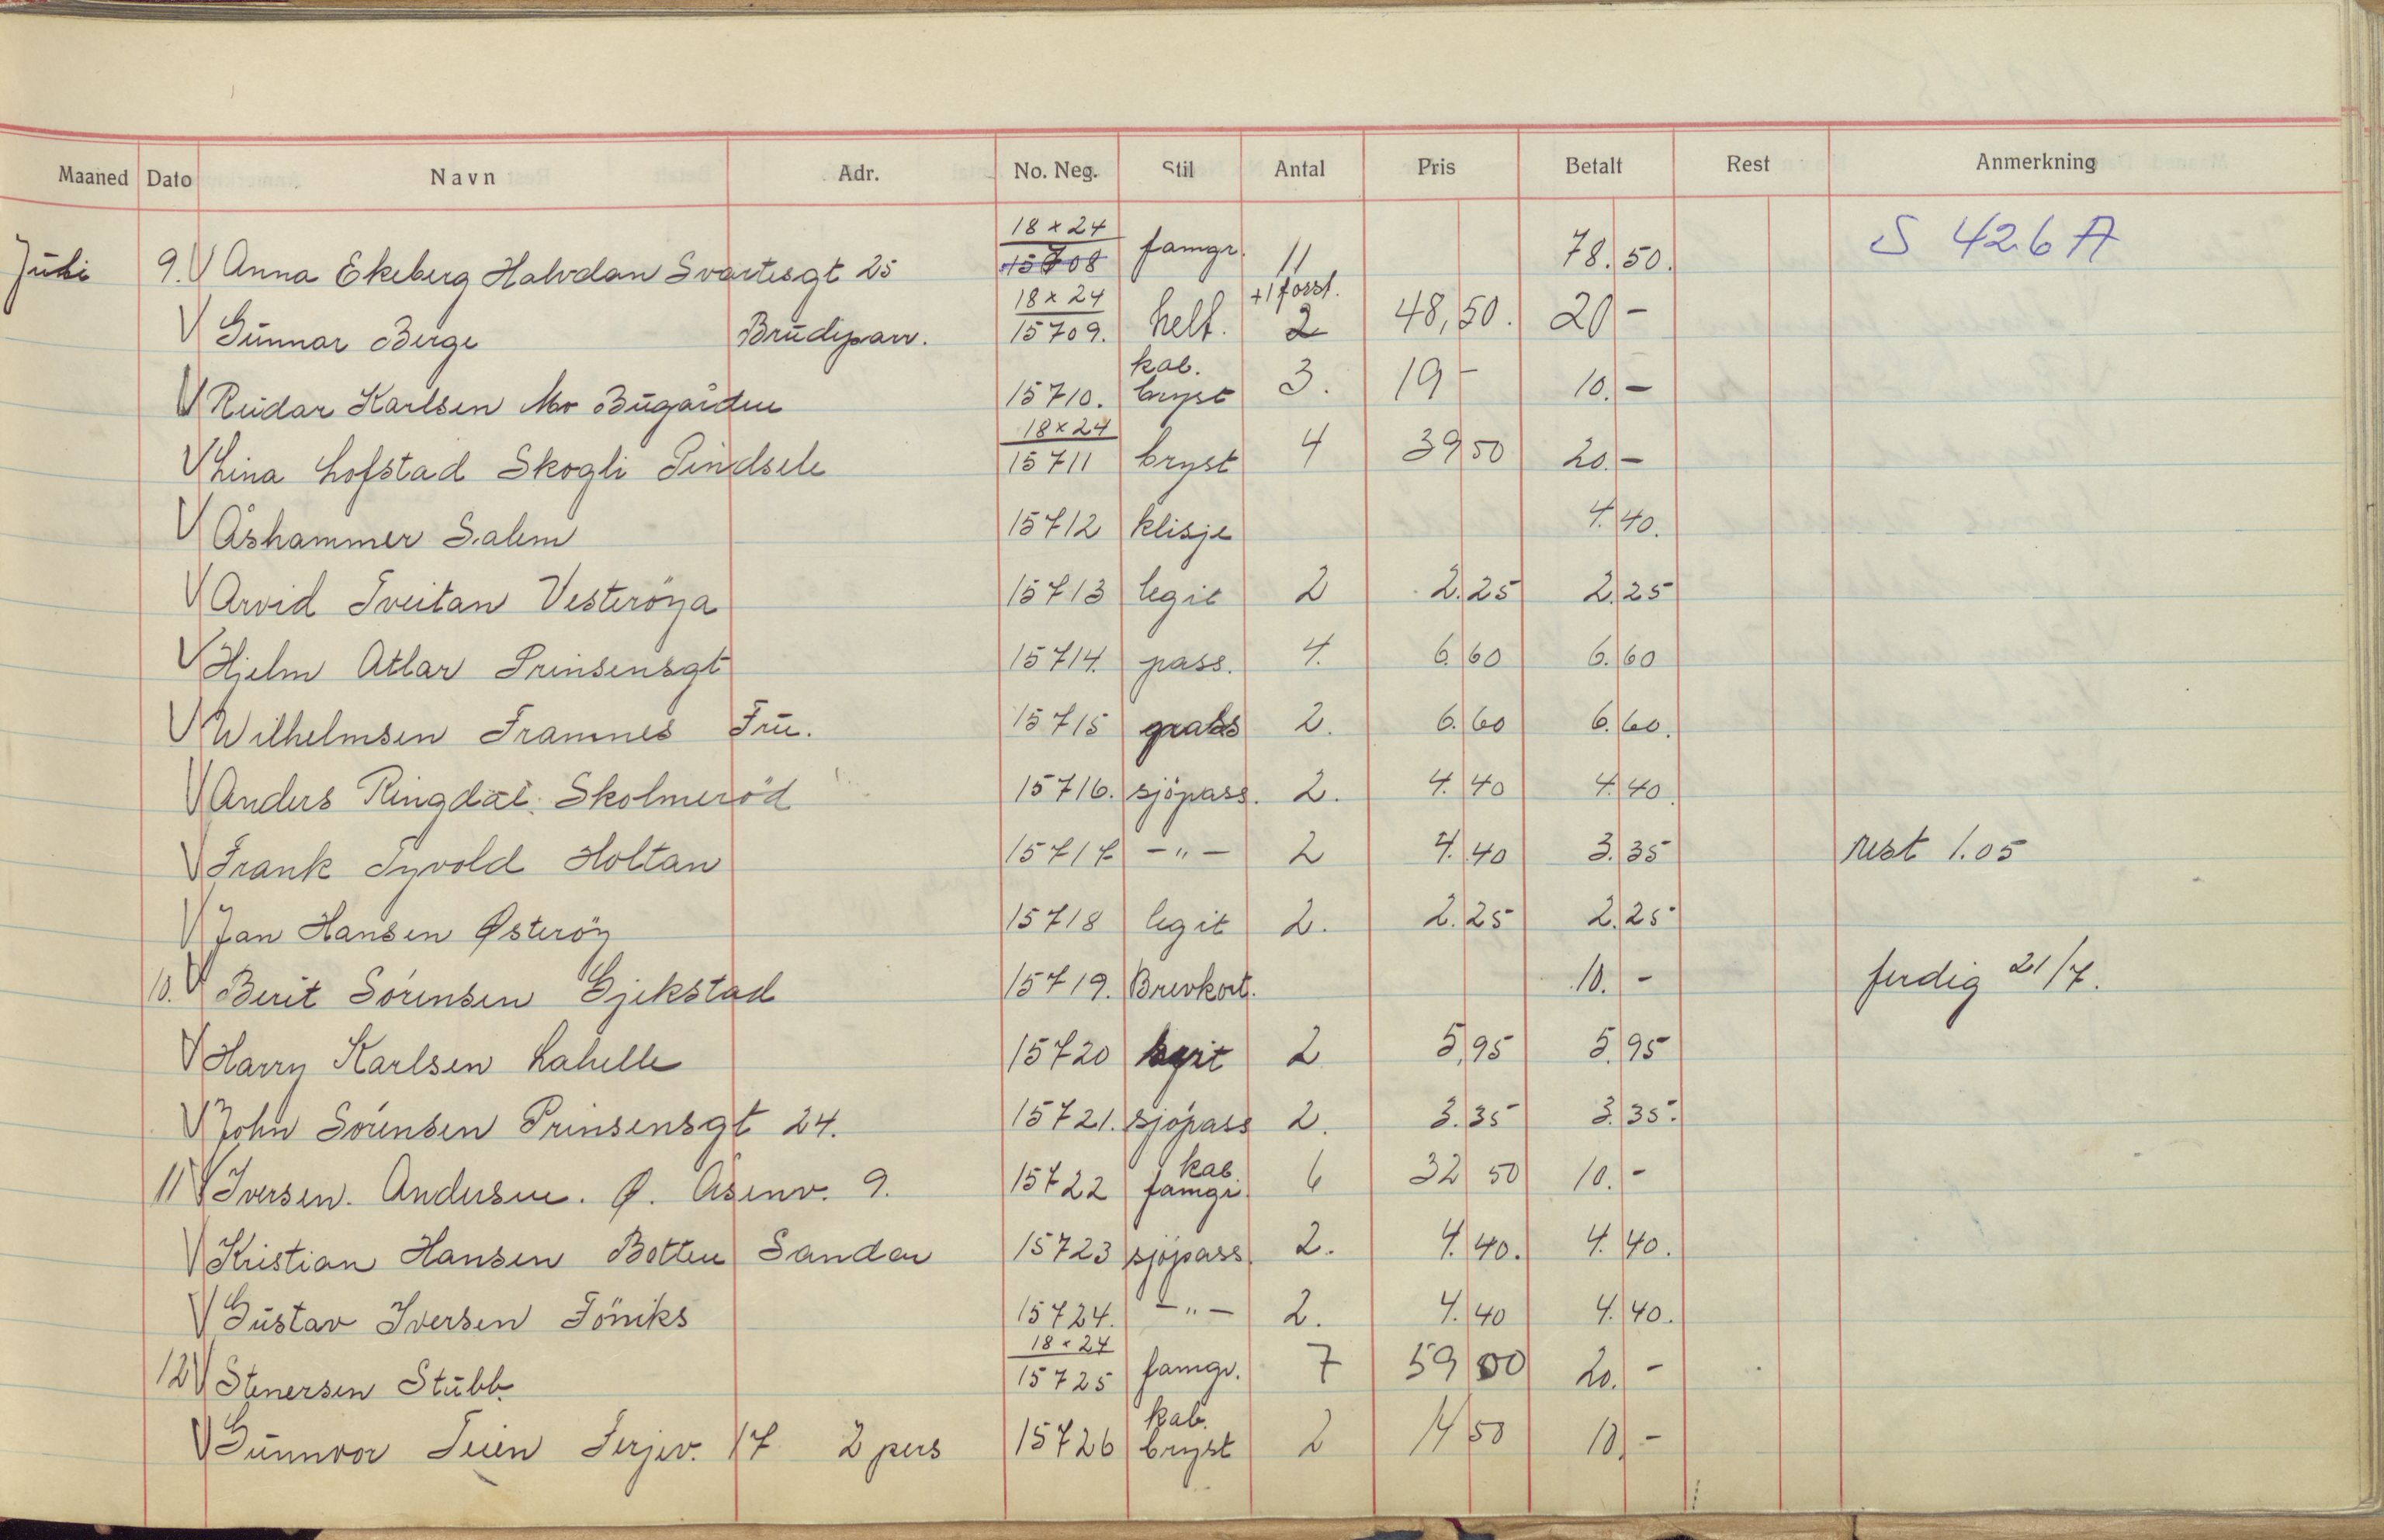 Maaned Dato Navn Adr. No. Neg. Stil Antal Pris Betalt Rest Anmerkning
Juli 9. V Anna Ekeberg Halvdan Svartesgt 25 18 x 24 15708 famgr. 11 78.50. S 426 A
V Gunnar Berge Brudepar. 18 x 24 15709. helf. +1 forst. 2 48,50. 20 -
V Reidar Karlsen Mo Bugården 15710. kab. bryst 3. 19 - 10. -
V Lina Lofstad Skogli Pindsele 18 x 24 15711 bryst 4 39 50 20. -
V Åshammer Salem 15712 klisje 4.40.
V Arvid Tveitan Vesteröya 15713 legit 2 2.25 2.25
V Hjelm Atlar Prinsensgt 15714. pass. 4. 6.60 6.60
V Wilhelmsen Framnes Fru. 15715 2. 6.60 6.60.
V Anders Ringdal. Skolmeröd 15716. sjöpass. 2. 4.40 4.40.
V Frank Tyvold Holtan 15717 - " - 2 4.40 3.35 rest 1.05
V Jan Hansen Østeröy 15718 legit 2. 2.25 2.25
10. V Berit Sörensen Gjekstad 15719. Brevkort. 10. - ferdig 21/7.
V Harry Karlsen Lahelle 15720 legit 2 5,95 5.95
V John Sörensen Prinsensgt 24. 15721. sjöpass 2. 3.35 3.35.
11 V Iversen. Andersen. Ø. Åsenv. 9. 15722 kab famgr. 6 32 50 10. -
V Kristian Hansen Botten Sandar 15723 sjöpass. 2. 4.40. 4.40.
V Gustav Iversen Föniks 15724. - " - 2. 4.40 4.40.
12 V Stenersen Stubb. 18 x 24 15725 famgr. 7 59 00 20. -
V Gunnvor Teien Terjev. 17 2 pers 15726 kab. bryst 2 14 50 10. -